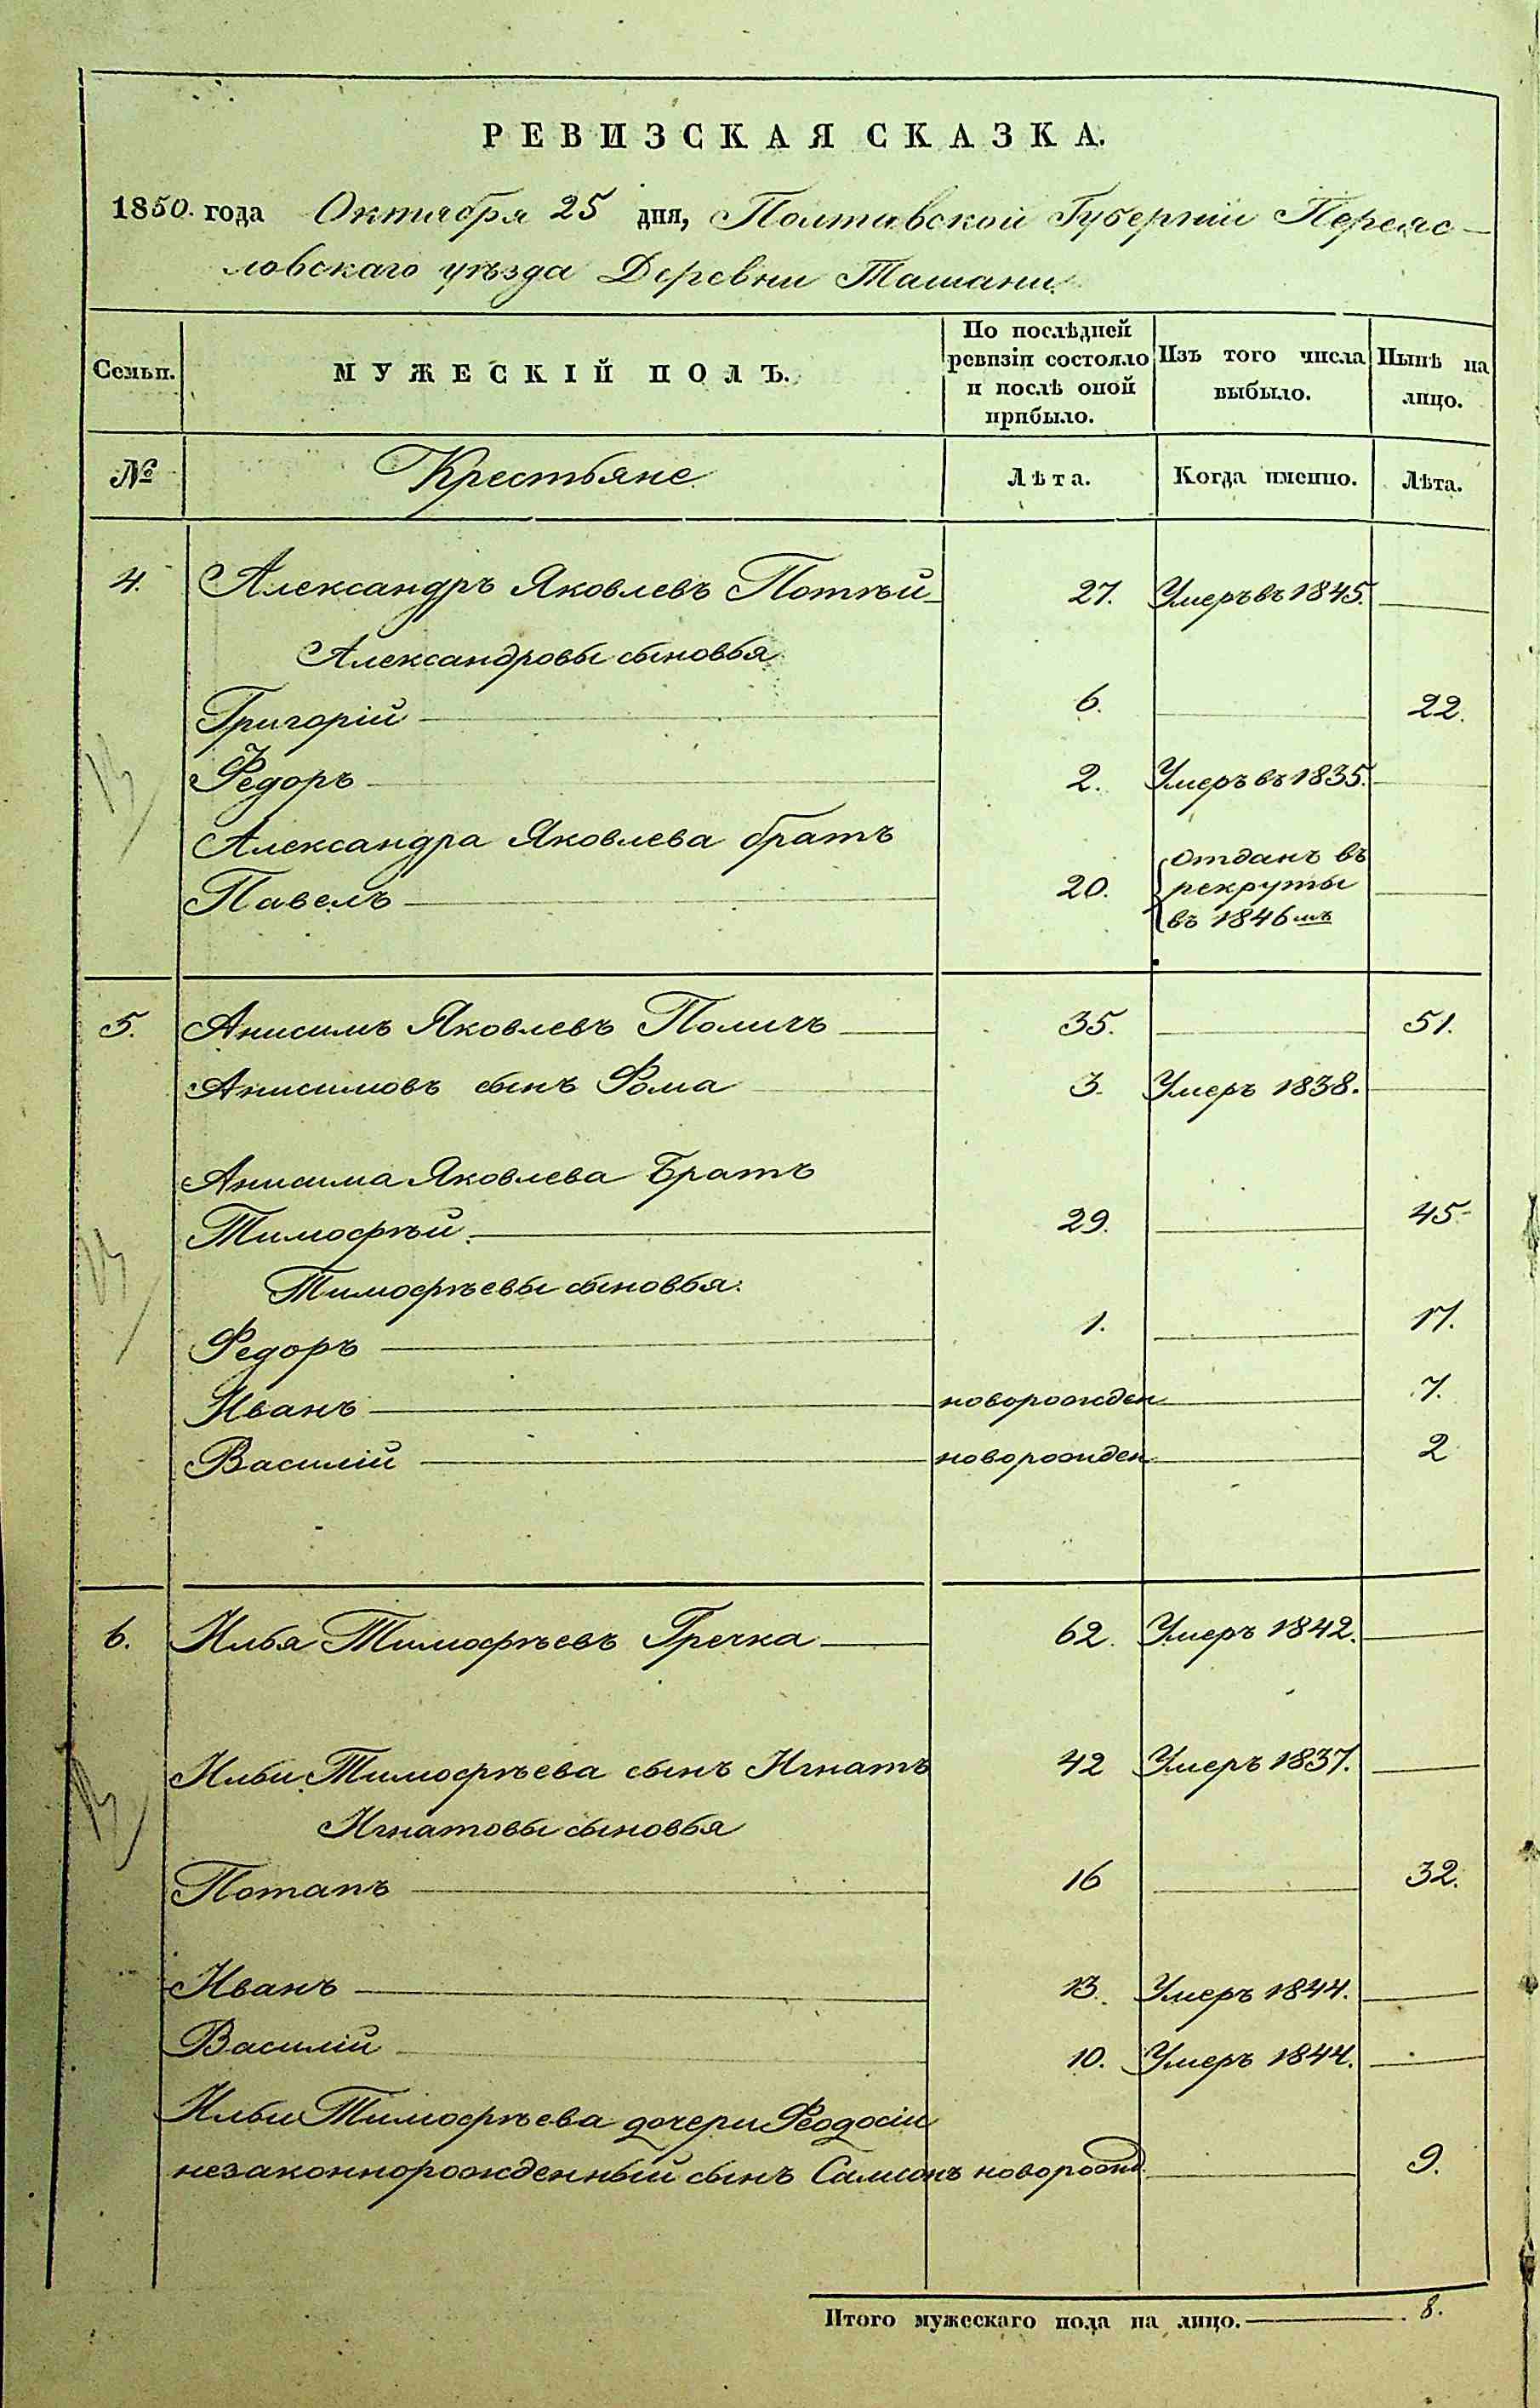 РЕВИЗСКАЯ СКАЗКА.
1850. года Октября 25 дня, Полтавской Губерніи Переяс-
ловскаго уѣзда Деревни Ташани.
Семьи. МУЖЕСКІЙ ПОЛЪ. По послѣдней ревизіи состояло и послѣ оной прибыло. Изъ того числа выбыло. Нынѣ на лицо.
№ Крестьяне Лѣта. Когда именно. Лѣта.
4. Александръ Яковлевъ Потѣй 27. Умеръ въ 1845.
Александровы сыновья
Григорій 6. 22.
Федоръ 2. Умеръ въ 1835.
Александра Яковлева братъ
Павелъ 20. отданъ въ рекруты въ 1846мъ
5. Анисимъ Яковлевъ 35. 51.
Анисимовъ сынъ Фома 3. Умеръ 1838.
Анисима Яковлева Братъ
Тимофѣй 29. 45
Тимофѣевы сыновья.
Федоръ 1. 17.
Иванъ новорожден 7.
Василій новорожден 2
6. Илья Тимофѣевъ Гречка 62. Умеръ 1842.
Ильи Тимофѣева сынъ Игнатъ 42 Умеръ 1837.
Игнатовы сыновья
Потапъ 16 32.
Иванъ 13. Умеръ 1844.
Василій 10. Умеръ 1844.
Ильи Тимофѣева дочери Феодосіи
незаконнорожденный сынъ Самсонъ новорожд. 9.
Итого мужескаго пола на лицо. 8.